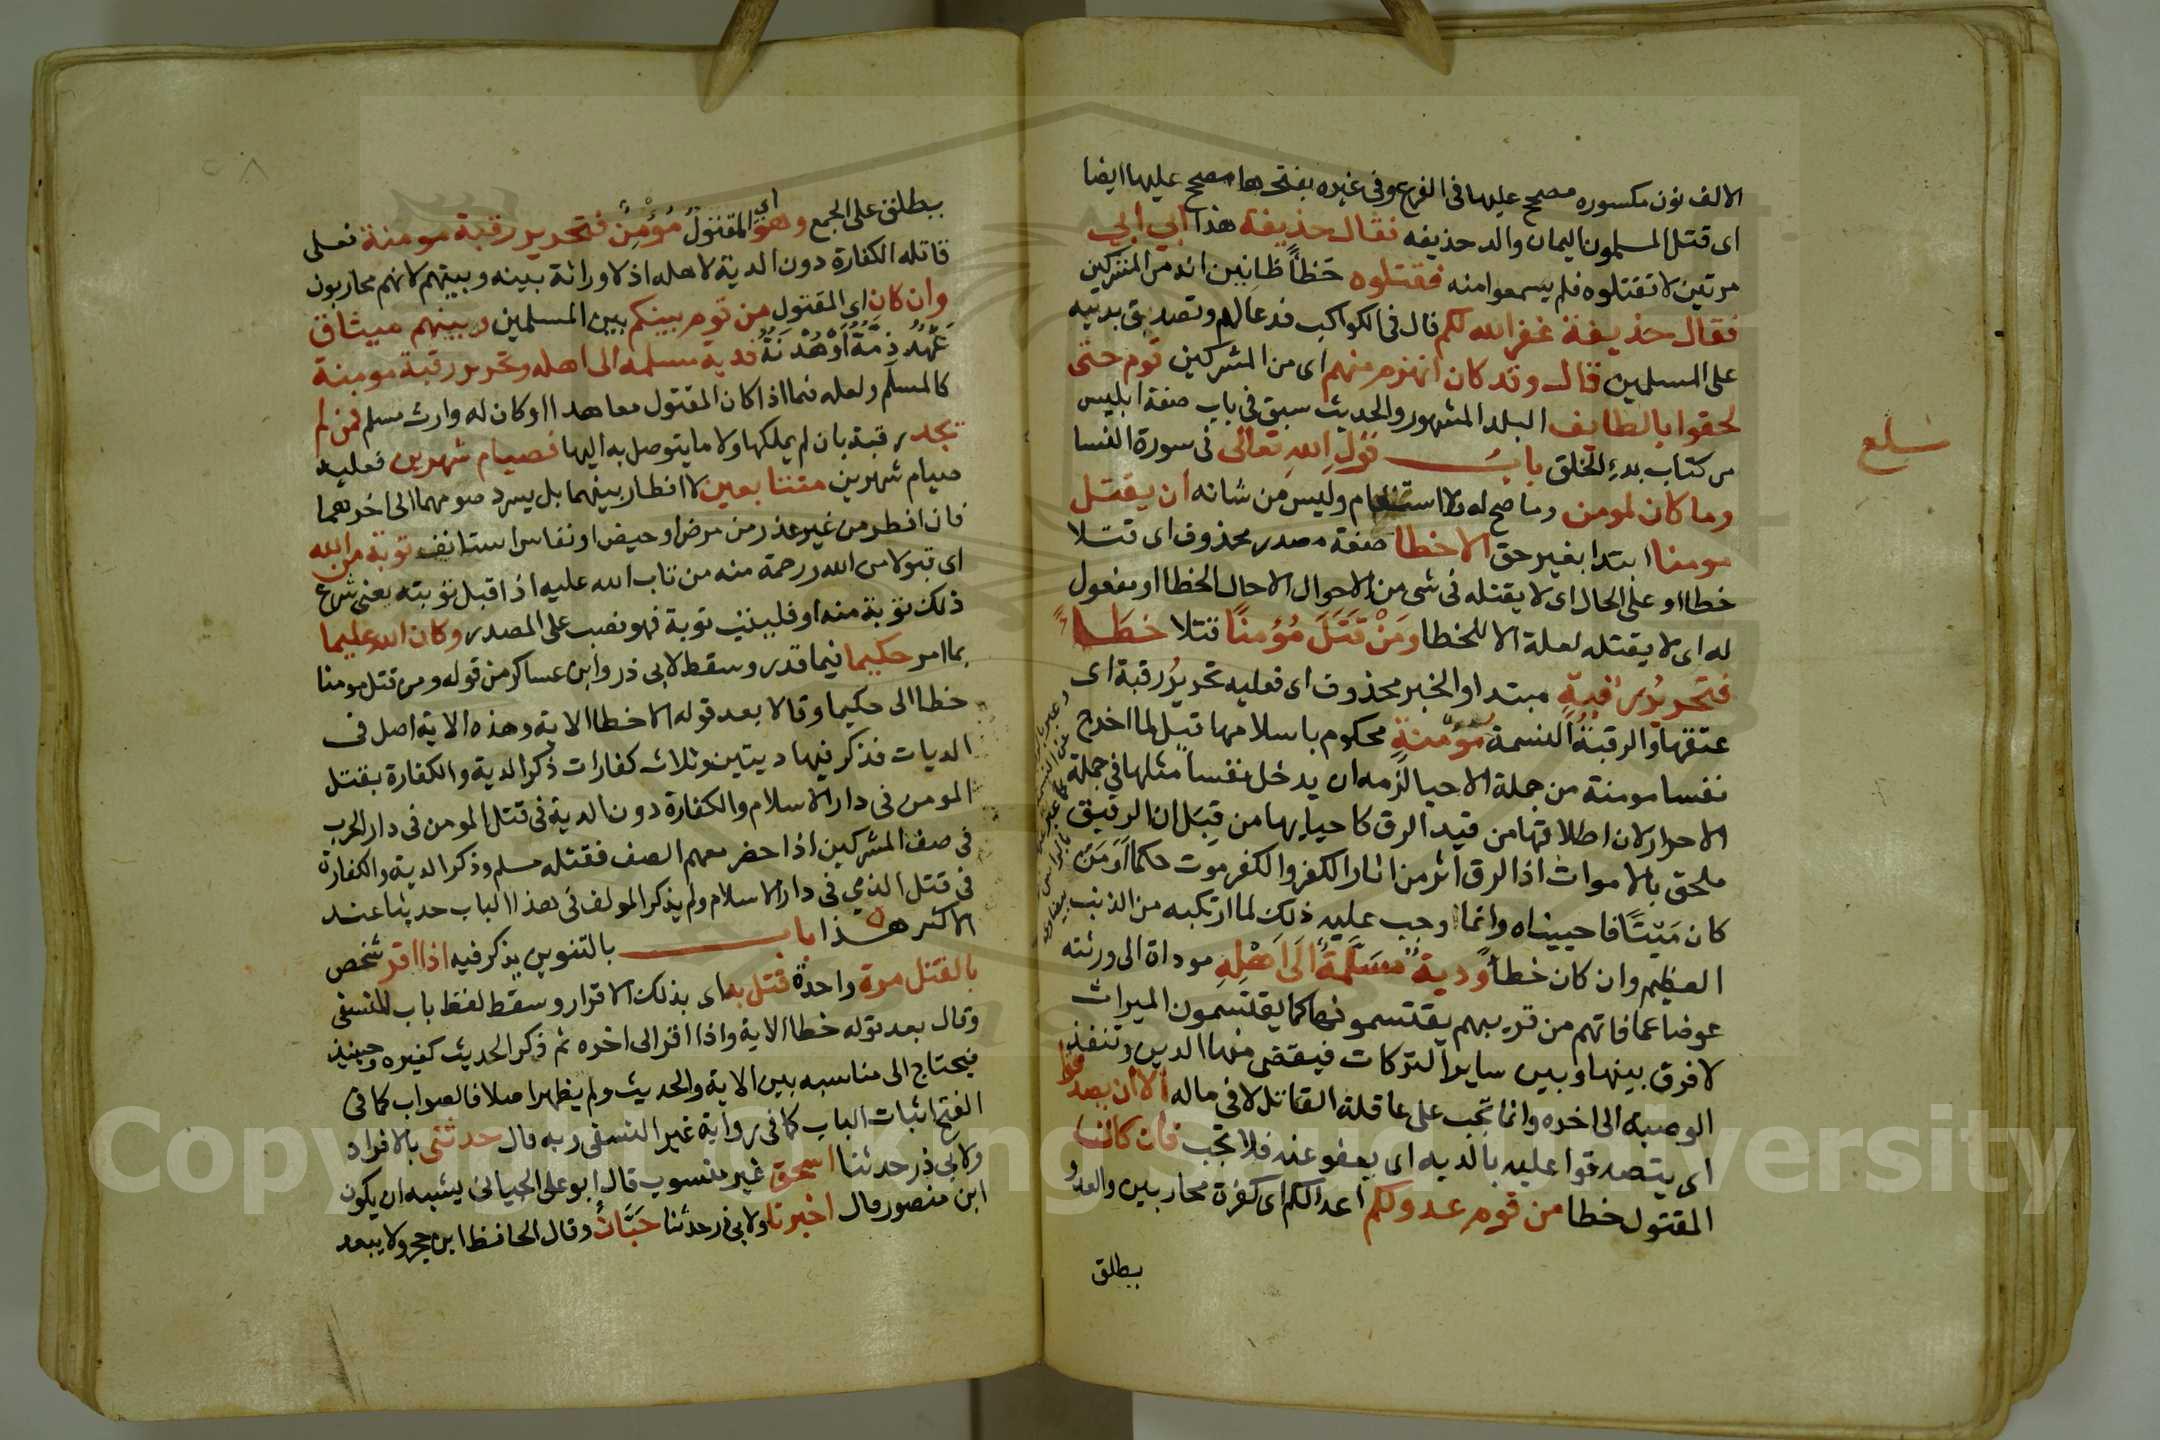 الالف نون مكسوره مصحح عليها فى الفرع وفى غيره بفتحها مصحح عليها ايضا
اى قتل المسلمون اليمان والد حذيفه فقال حذيفة هذا ابي ابي
مرتين لا تقتلوه فلم يسمعوا منه فقتلوه خَطَأً ظانين انه من المشركين
فقال حذيفة غفر الله لكم قال فى الكواكب فدعا لهم وتصدق بديته
على المسلمين قال وقد كان انهزم منهم اى من المشركين قوم حتى
لحقوا بالطايف البلد المشهور والحديث سبق فى باب صفة ابليس
من كتاب بدء الخلق باب قول الله تعالى فى سورة النسا
وما كان لمومن وما صح له ولا استقام وليس من شانه ان يقتل
مومنا ابتدا بغير حق الا خطا صفة مصدر محذوف اى قتلا
خطا او على الحال اى لا يقتله فى شى من الاحوال الا حال الخطا او مفعول
له اى لا يقتله لعلة الا للخطا ومَنْ قَتَلَ مُؤمنًا قتلا خَطَأً
فتحريرُ رقبةٍ مبتدا والخبر محذوف اى فعليه تحريرُ رقبة اى
عتقها والرقبةُ النسمة مؤمنةٍ محكوم باسلامها قيل لما اخرج
نفسا مومنة من جملة الاحيا لزمه ان يدخل نفساً مثلها في جملة
الاحرار لان اطلاقها من قيد الرق كاحيايها من قِبَل ان الرقيق
ملحق بالاموات اذ الرق اثر من اثار الكفر والكفر موت حكماً أوَمَن
كان مَيْتًا فاحييناه وانما وجب عليه ذلك لما ارتكبه من الذنب
العظيم وان كان خطأً ودية مسَلَّمةٌ الَى اَهْلِهِ موداة الى ورثته
عوضا عما فاتهم من قريبهم يقتسمونها كما يقتسمون الميراث
لا فرق بينها وبين ساير التركات فيقضى منها الدين وتنفذ
الوصيه الى اخره وانما تجب على عاقلة القاتل لا فى ماله الا ان يصدقوا
اى يتصدقوا عليه بالديه اى يعفو عنه فلا تجب فان كان
المقتول خطا من قوم عدو لكم اعدا لكم اى كفرة محاربين والعدو
يطلق
سلع
يطلق على الجمع وهو اى المقتولُ مُؤْمِنٌ فتحرير رقبة مومنة فعلى
قاتله الكفارة دون الدية لاهله اذ لا وراثة بينه وبينهم لانهم محاربون
وان كان اى المقتول من قوم بينكم بين المسلمين وبينهم ميثاق
عَهْدُ ذِمَّةٍ اَوْ هُدْنَةٌ فدية مسلمه الى اهله وتحرير رقبة مومنة
كالمسلم ولعله فيما اذا كان المقتول معاهدا او كان له وارث مسلم فمن لم
يجد رقبة بان لم يملكها ولا ما يتوصل به اليها فصيام شهرين فعليه
صيام شهرين متتابعين لا افطار بينهما بل يسرد صومهما الى اخرهما
فان افطر من غير عذر من مرض او حيض او نفاس استانف توبة من الله
اى قبولا من الله ورحمة منه من تاب الله عليه اذا قبل توبته يعنى شرع
ذلك توبة منه او فليتب توبة فهو نصب على المصدر وكان الله عليما
بما امر حكيما فيما قدر وسقط لابى ذر وابن عساكر من قوله ومن قتل مومنا
خطا الى حكيما وقالا بعد قوله الا خطا الاية وهذه الاية اصل فى
الديات فذكر فيها ديتين وثلاث كفارات ذكر الدية والكفارة بقتل
المومن فى دار الاسلام والكفارة دون الدية فى قتل المومن فى دار الحرب
فى صف المشركين اذا حضر معهم الصف فقتله مسلم وذكر الدية والكفارة
فى قتل الذمي فى دار الاسلام ولم يذكر المولف فى هذا الباب حديثا عند
الاكثر هذا باب بالتنوين يذكر فيه اذا اقر شخص
بالقتل مرة واحدة قتل به اى بذلك الاقرار وسقط لفظ باب للنسفى
وقال بعد قوله خطا الاية واذا اقر الى اخره ثم ذكر الحديث كغيره وحينيذ
فيحتاج الى مناسبه بين الاية والحديث ولم يظهر اصلا فالصواب كما فى
الفتح اثبات الباب كما فى رواية غير النسفى وبه قال حدثنى بالافراد
ولابي ذر حدثنا اسحق غير منسوب قال ابو على الجيانى يشبه ان يكون
ابن منصور قال اخبرنا ولابى ذر حدثنا حَبَّانُ وقال الحافظ ابن حجر ولا يبعد
Copyright © King Saud University